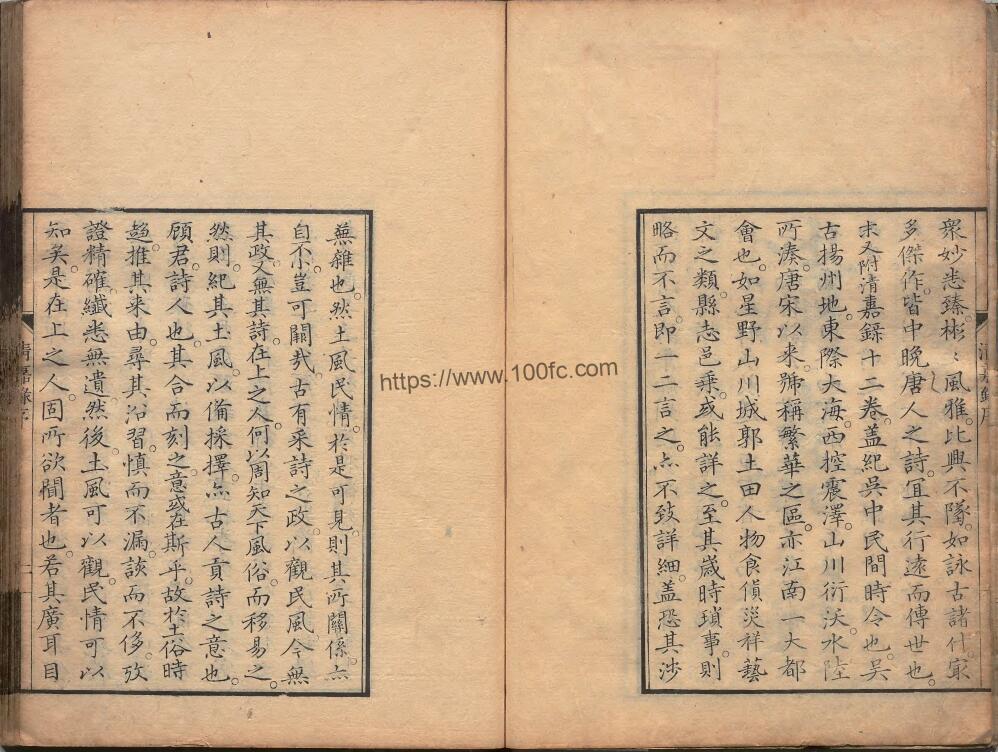 衆妙悉臻彬〻風雅比興不墜如詠古諸什寂
多傑作皆中晚唐人之詩冝其行遠而傳世也
末又附清嘉錄十二卷盖紀吳中民間時令也吳
古揚州地東際大海西控震澤山川衍沃水陸
所湊唐宋以來號稱繁華之區亦江南一大都
會也如星野山川城郭土田人物食貨災祥藝
文之類縣志邑乗或能詳之至其歲時瑣事則
略而不言即一二言之亦不致詳細盖恐其涉
蕪雜也然土風民情於是可見則其所關係亦
自不小豈可闕㢤古有采詩之政以觀民風今無
其政又無其詩在上之人何以周知天下風俗而移易之
然則紀其土風以俻採擇亦古人貢詩之意也
顧君詩人也其合而刻之意或在斯乎故於土俗時
趍推其来由尋其沿習慎而不漏該而不侈攷
證精確纎悉無遺然後土風可以觀民情可以
知矣是在上之人固所欲聞者也若其廣耳目
清嘉錄序
https://www.100fc.com